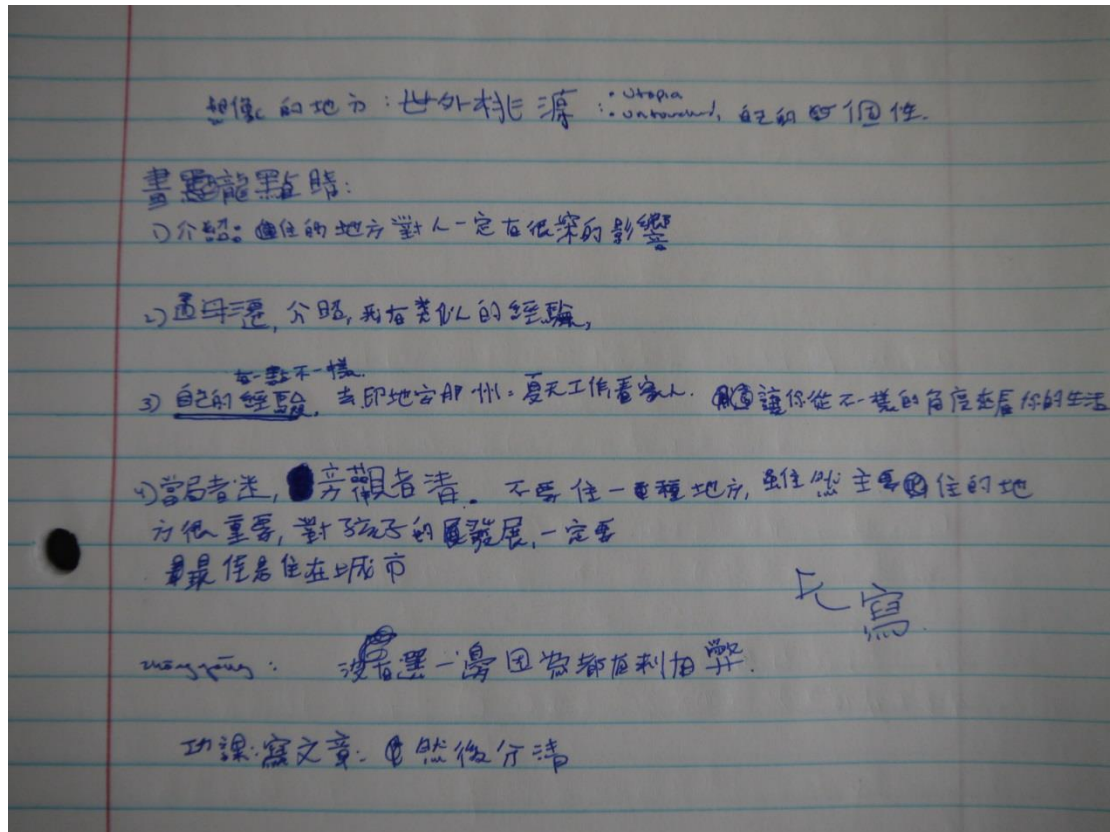 想像的地方:世外桃源:·utopia
·untouched,自己的個性.
畫龍點睛:
1)介紹:住的地方對人一定有很深的影響
2)孟母三遷,介紹,我有类似的經驗,
有一點不一樣
3)自己的經驗,去印地安那州:夏天工作看家人.讓你從不一樣的角度來看你的生活
4)當局者迷,旁觀者清.不要住一種地方,雖然主要住的地
方很重要,對孩子的發展,一定要
最佳是住在城市
寫.
zhōng yōng: 沒有選一邊因為都有利有弊.
功課:寫文章.然後